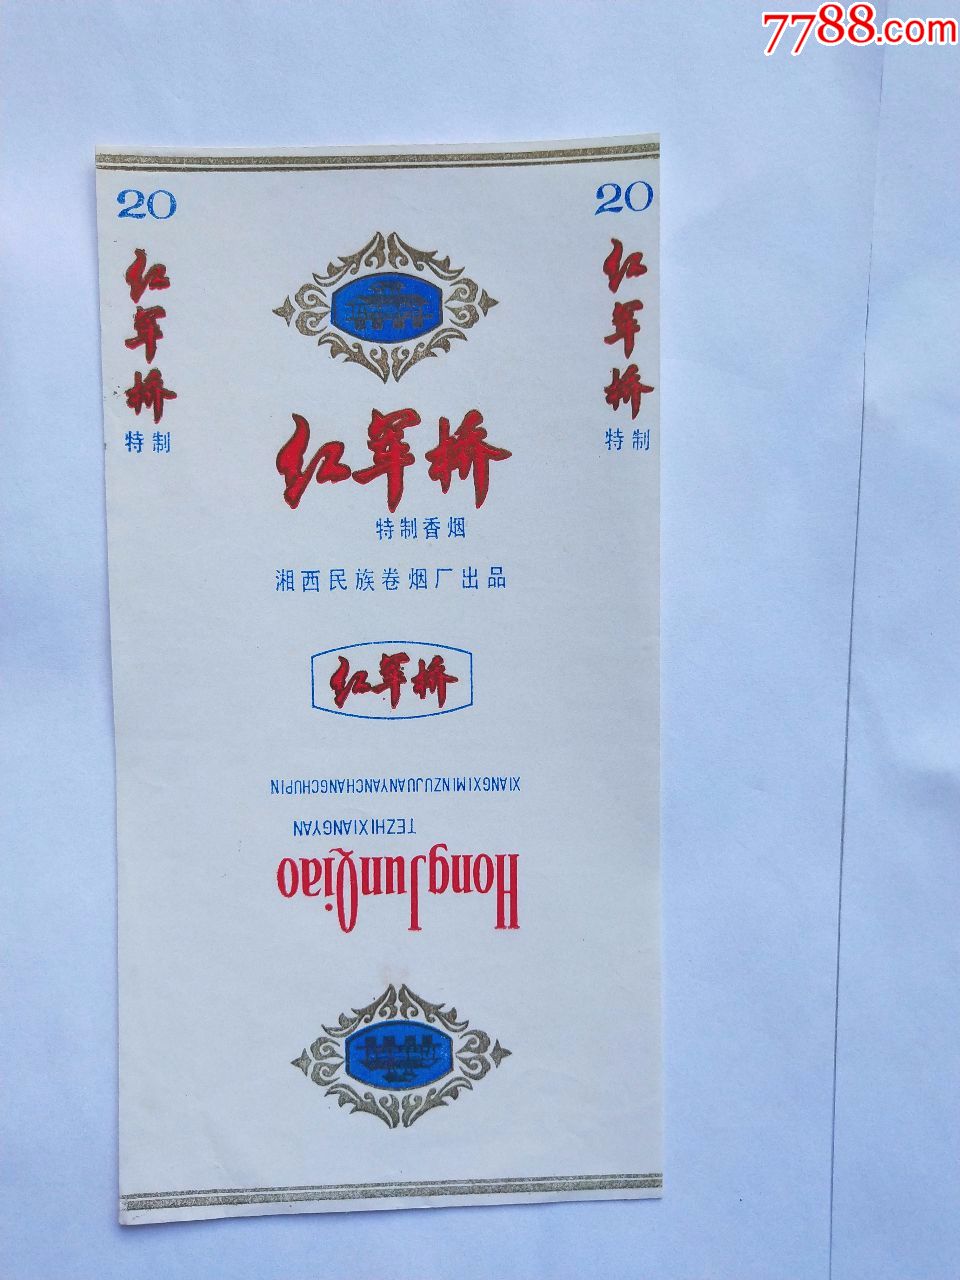 7788.com
20
红军桥
特制
20
红军桥
特制
红军桥
特制香烟
湘西民族卷烟厂出品
红军桥
XIANGXIMINZUJUANYANCHANGCHUPIN
TEZHIXIANGYAN
HongJunQiao